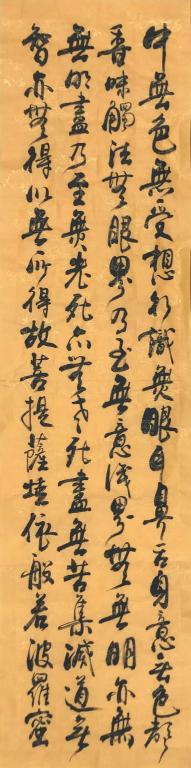 中無色無受想行識無眼耳鼻舌身意无色聲
香味觸法無眼界乃至無意識界無無明亦無
無明盡乃至無老死亦無老死盡無苦集滅道无
智亦無得以無所得故菩提薩埵依般若波羅蜜